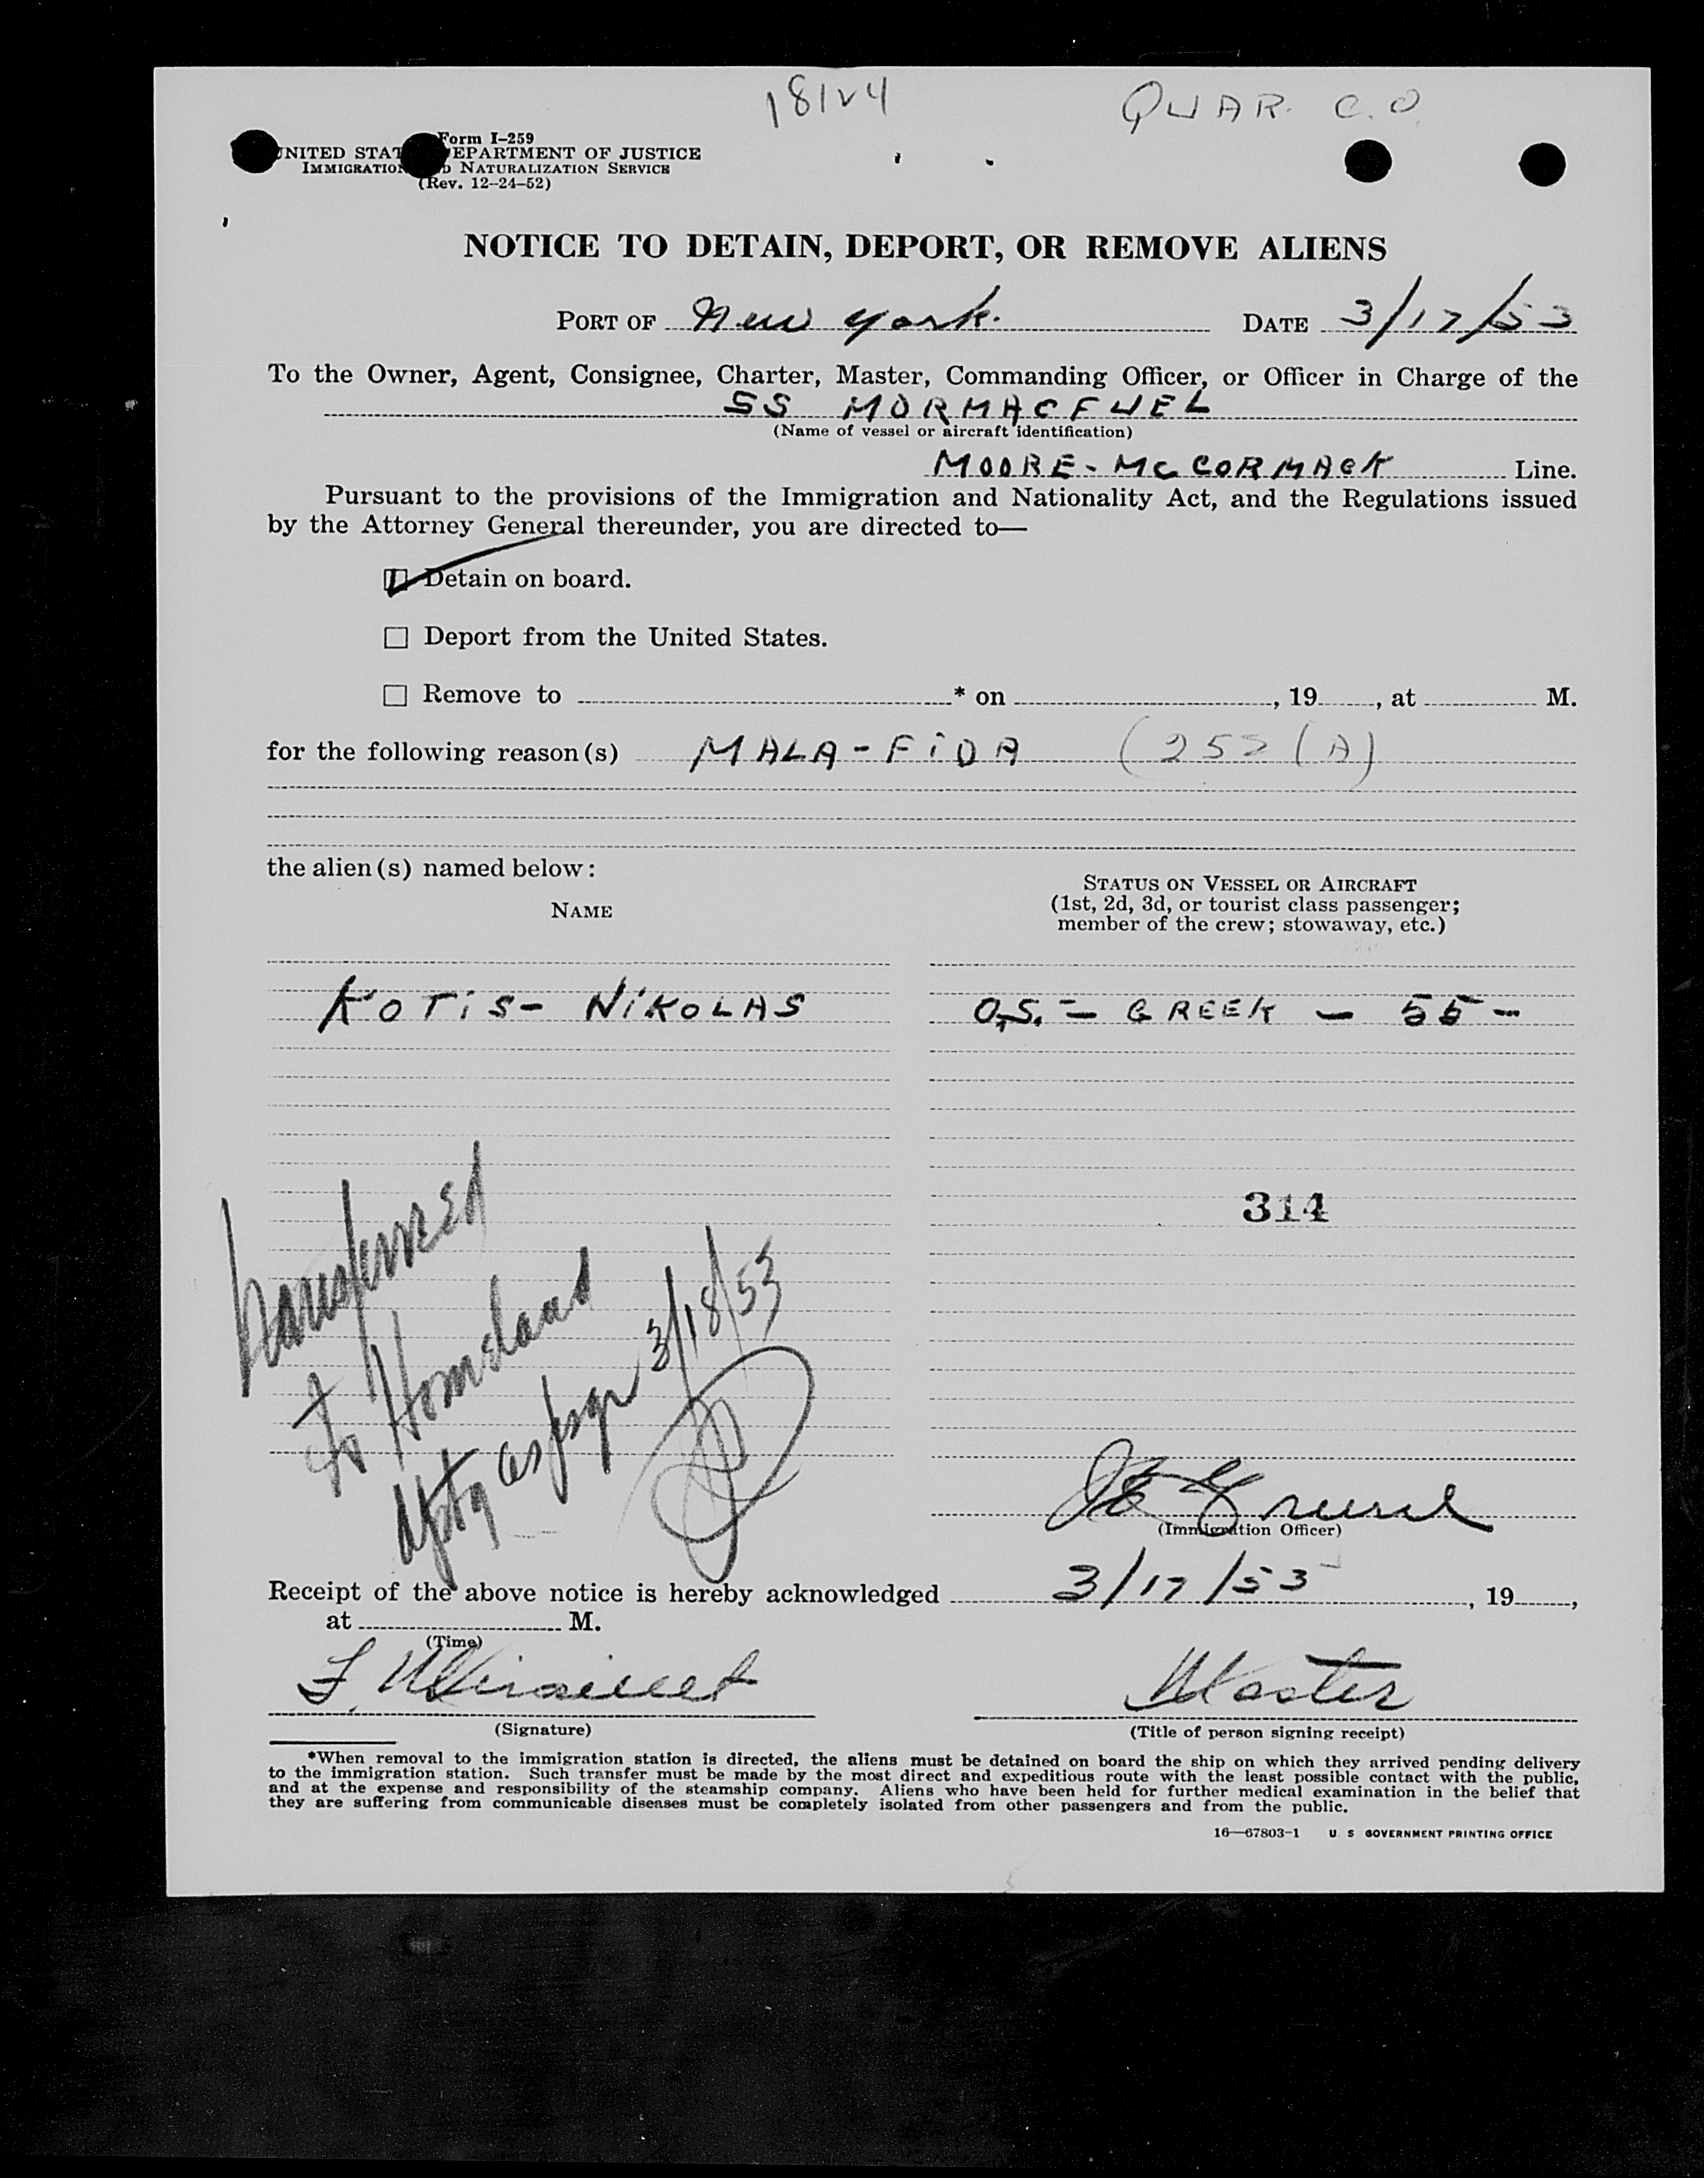 18124
QUAR. C.O.
Form I-259
UNITED STAT DEPARTMENT OF JUSTICE
IMMIGRATION D NATURALIZATION SERVICE
(Rev. 12-24-52)
NOTICE TO DETAIN, DEPORT, OR REMOVE ALIENS
PORT OF New York. DATE 3/17/53
To the Owner, Agent, Consignee, Charter, Master, Commanding Officer, or Officer in Charge of the
SS MORMACFUEL
(Name of vessel or aircraft identification)
MOORE-McCORMACK Line.
Pursuant to the provisions of the Immigration and Nationality Act, and the Regulations issued
by the Attorney General thereunder, you are directed to—
Detain on board.
Deport from the United States.
Remove to * on , 19 , at M.
for the following reason(s) MALA-FIDA (252(A)
the alien(s) named below:
NAME
STATUS ON VESSEL OR AIRCRAFT
(1st, 2d, 3d, or tourist class passenger;
member of the crew; stowaway, etc.)
KOTIS- NIKOLAS O.S. - GREEK - 55 -
314
transferred
to Homeland
as psgr 3/18/53
(Immigration Officer)
Receipt of the above notice is hereby acknowledged 3/17/53 , 19 ,
at M.
(Time)
F. Master
(Signature) (Title of person signing receipt)
*When removal to the immigration station is directed, the aliens must be detained on board the ship on which they arrived pending delivery
to the immigration station. Such transfer must be made by the most direct and expeditious route with the least possible contact with the public,
and at the expense and responsibility of the steamship company. Aliens who have been held for further medical examination in the belief that
they are suffering from communicable diseases must be completely isolated from other passengers and from the public.
16—67803-1 U S GOVERNMENT PRINTING OFFICE